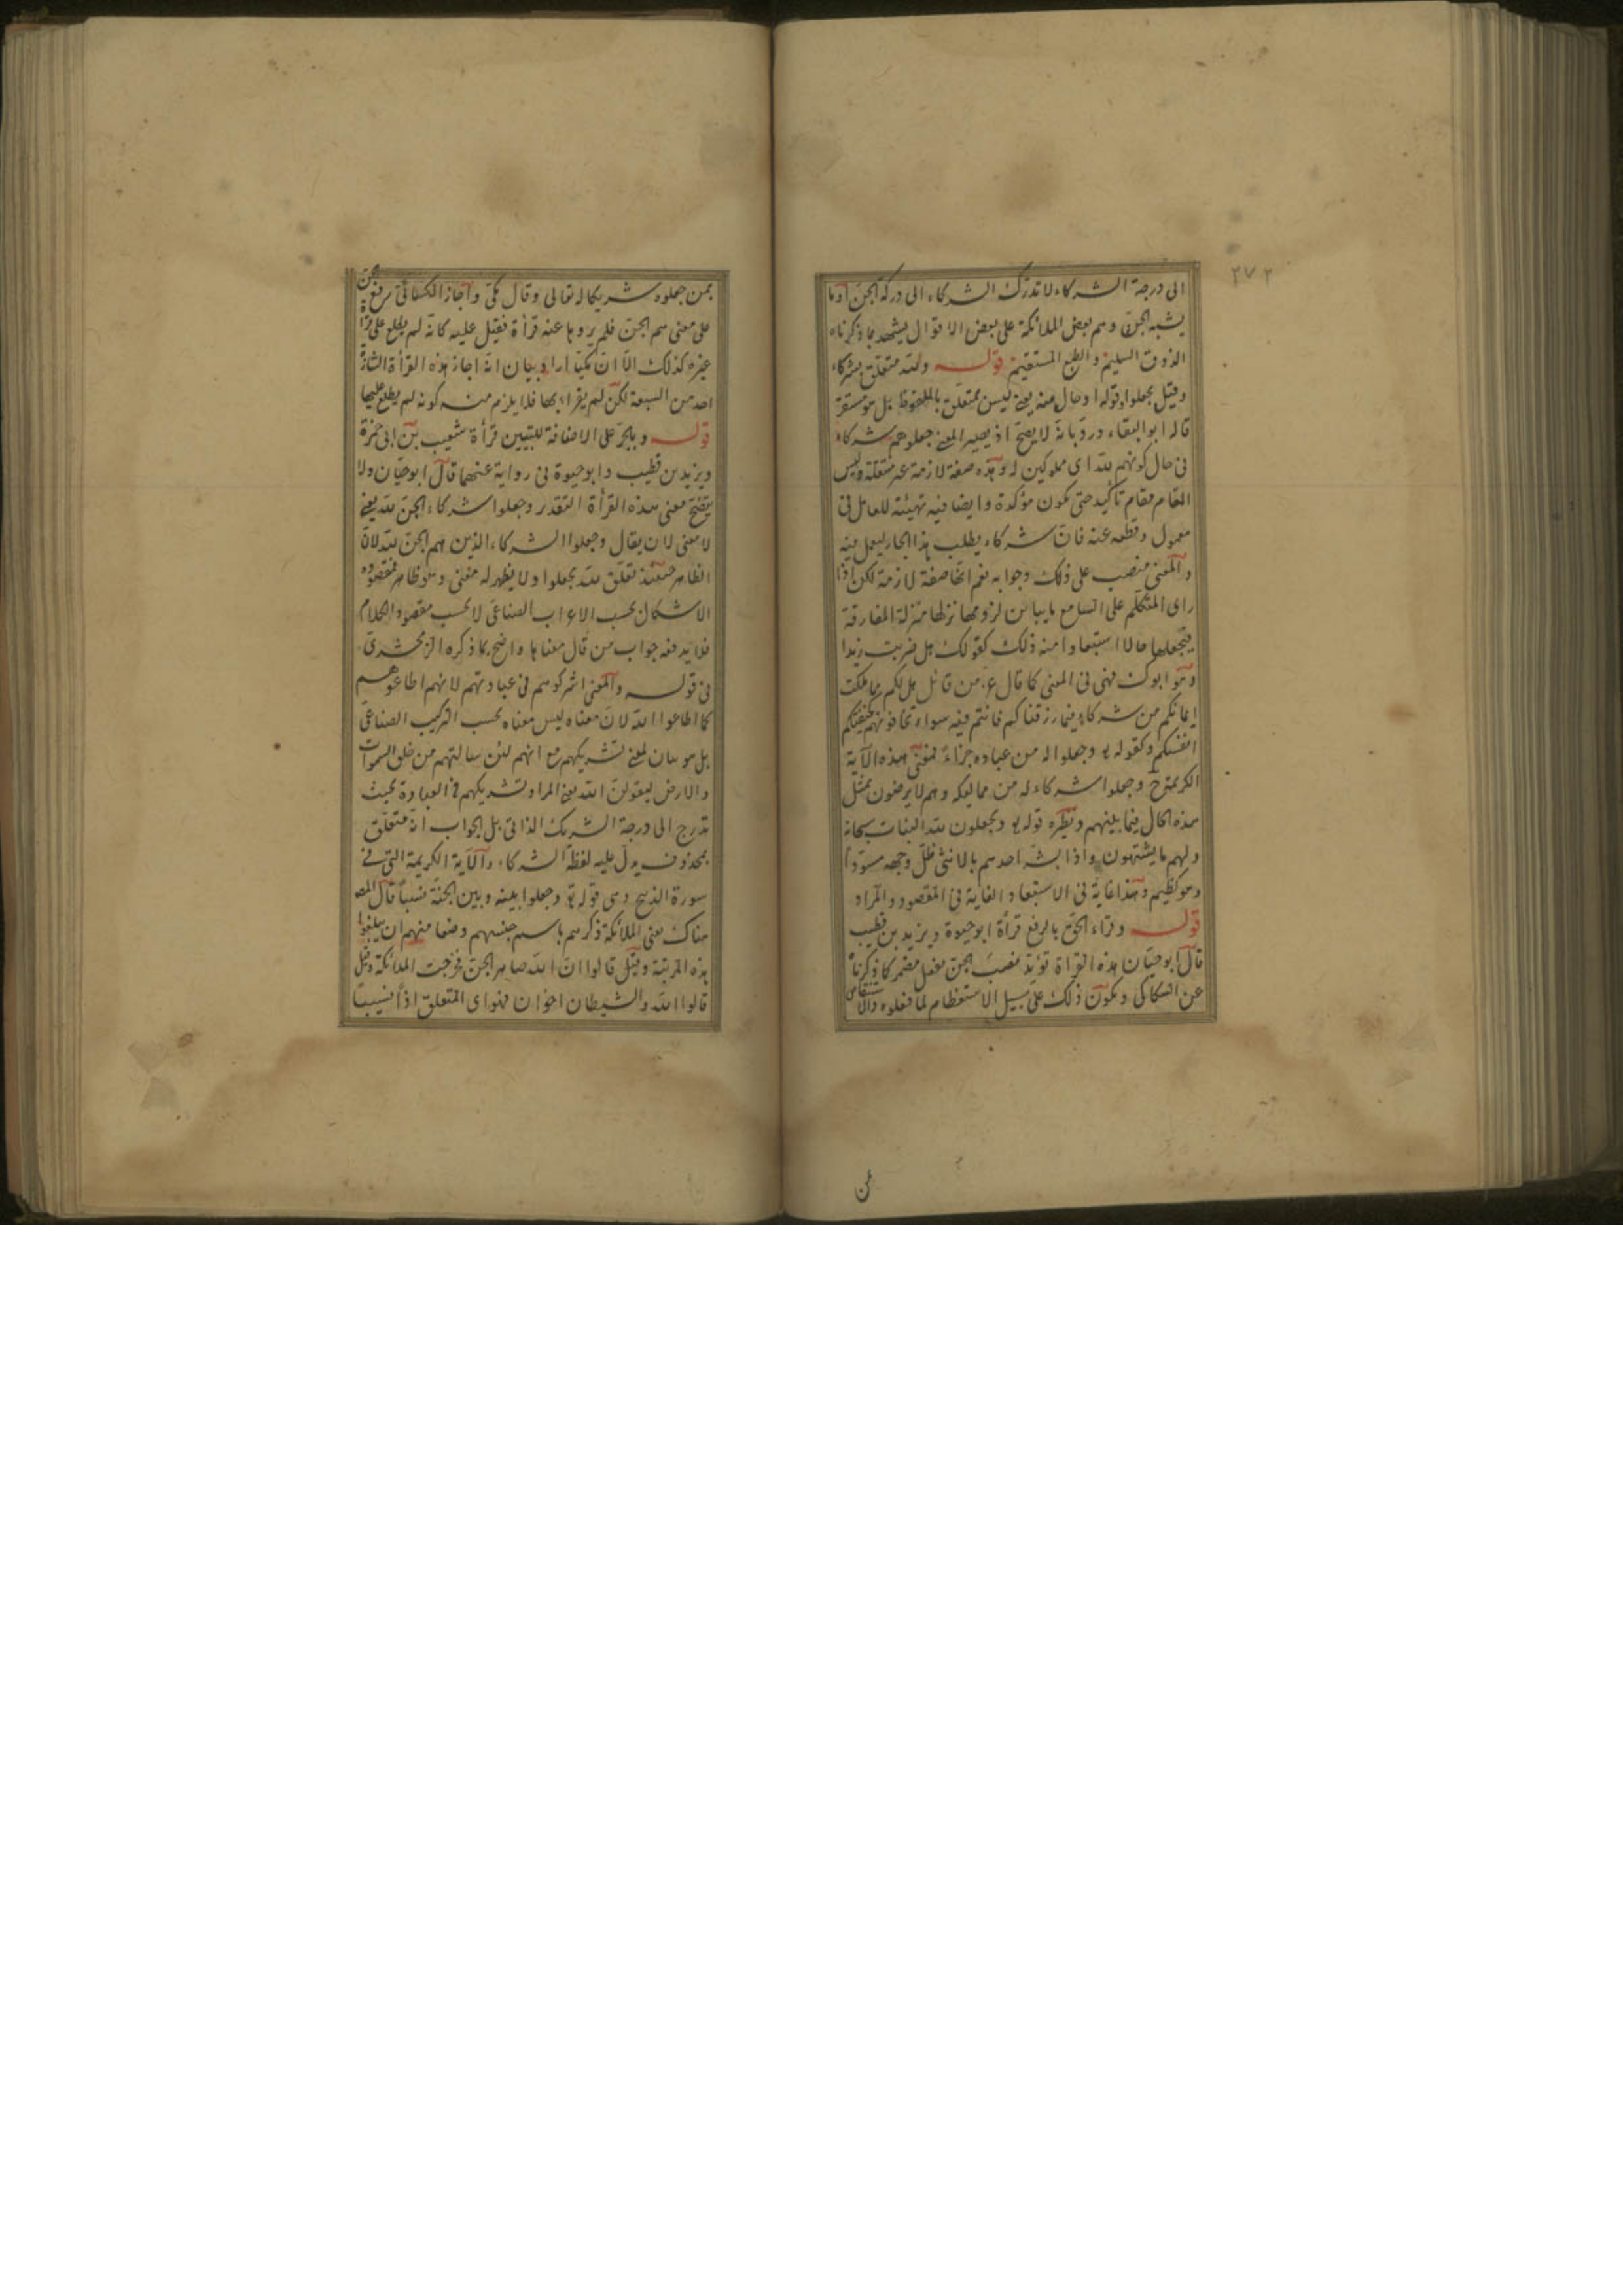 ٢٧٢
الى درجة الشركاء لا تدرك الشركاء الى دركة الجن او ما
يشبه الجن وهم بعض الملائكة على بعض الاقوال يشهد بما ذكرناه
الذوق السليم والطبع المستقيم قوله ولله متعلق بشركاء
وقيل بجعلوا وقوله او حال منه يعني ليس بمتعلق بالملفوظ بل هو مستقر
قاله ابو البقاء ورد بانه لا يصح اذ يصير المعنى جعلوهم شركاء
في حال كونهم لله اى مملوكين له وهذه صفة لازمة غير منتقلة وليس
المقام مقام تأكيد حتى تكون مؤكدة وايضا فيه تهيئة للعامل في
معمول وقطعه عنه فان شركاء يطلب هذا الجار ليعمل فيه
والمعنى منصب على ذلك وجوابه نعم انها صفة لازمة لكن اذا
راى المتكلم على السامع ما يباين لزومها نزلها منزلة المفارقة
فيجعلها حالا استبعادا منه ذلك كقولك هل ضربت زيدا
وهو ابوك فهي في المعنى كما قال عز من قائل هل لكم مما ملكت
ايمانكم من شركاء فيما رزقناكم فانتم فيه سواء تخافونهم كخيفتكم
انفسكم وكقوله تع وجعلوا له من عباده جزاء فمعنى هذه الآية
الكريمة ح وجعلوا شركاء له من مماليكه وهم لا يرضون بمثل
هذه الحال فيما بينهم ونظيره قوله تع ويجعلون لله البنات سبحانه
ولهم ما يشتهون واذا بشر احدهم بالانثى ظل وجهه مسودا
وهو كظيم وهذا غاية في الاستبعاد الغاية في المقصود والمراد
قوله وقراء الجن بالرفع قرأة ابو حيوة ويزيد بن قطيب
قال ابو حيان هذه القراة تؤيد نصب الجن بفعل مضمر كما ذكرنا
عن السكاكى ويكون ذلك على سبيل الاستعظام لما فعلوه والانتقاص
من
بمن جعلوه شريكا له تعالى وقال مكى واجاز الكسائى رفع الجن
على معنى هم الجن فلم يروها عنه قرأة فقيل عليه كانه لم يطلع على قراة
غيره كذلك الا ان مكيا اراد بيان انه اجاز هذه القرأة الشاذة
احد من السبعة لكن لم يقراء بها فلا يلزم منه كونه لم يطلع عليها
قوله وبالجر على الاضافة للتبيين قرأة شعيب بن ابى حمزة
ويزيد بن قطيب وابو حيوة في رواية عنهما قال ابو حيان ولا
يتضح معنى هذه القرأة التقدير وجعلوا شركاء الجن لله يعني
لا معنى لان يقال وجعلوا الشركاء الذين هم الجن لله لان
الظاهر حينئذ تعلق لله بجعلوا ولا يظهر له معنى وهو ظاهر فمقصوده
الاشكال بحسب الاعراب الصناعى لا بحسب مقصود الكلام
فلا يدفعه جواب من قال معناها واضح بما ذكره الزمخشرى
في قوله والمعنى اشركوهم في عبادتهم لانهم اطاعوهم
كما اطاعوا الله لان معناه ليس معناه بحسب التركيب الصناعى
بل هو بيان لمعنى تشريكهم مع انهم لئن سالتهم من خلق السموات
والارض ليقولن الله يعني المراد تشريكهم في العبادة بحيث
تدرج الى درجة الشريك الذاتى بل الجواب انه متعلق
بمحذوف يدل عليه لفظة الشركاء والآية الكريمة التي في
سورة الذبيح وهى قوله تع وجعلوا بينه وبين الجنة نسبا قال المص
هناك يعنى الملائكة ذكرهم باسم جنسهم وضعا منهم ان يبلغوا
هذه المرتبة وقيل قالوا ان الله صاهر الجن فخرجت الملائكة وقيل
قالوا الله والشيطان اخوان فهو اى المتعلق اذا نسيبا